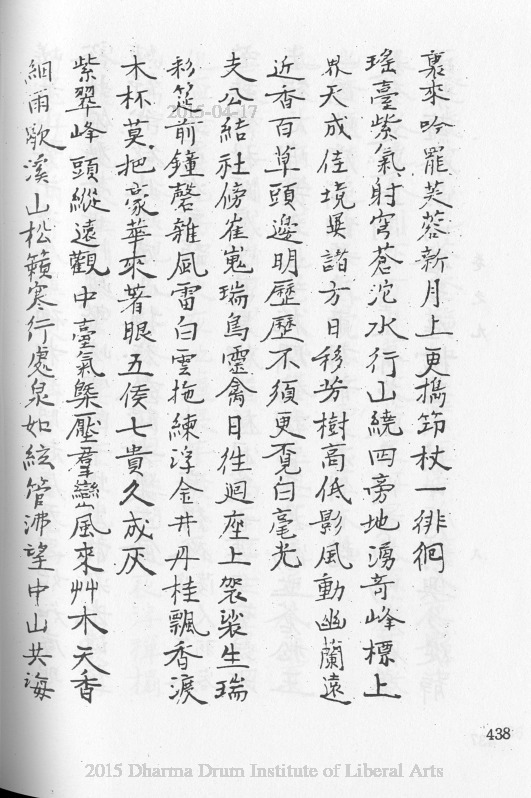 裏來吟罷芙蓉新月上更攜筇杖一徘徊
瑤臺紫氣射穹蒼沱水行山繞四旁地湧奇峰標上
界天成佳境異諸方日移芳樹高低影風動幽蘭遠
近香百草頭邊明歷歷不須更覓白毫光
夫公結社傍崔嵬瑞鳥靈禽日徃迴座上袈裟生瑞
彩筵前鐘磬雜風雷白雲拖練浮金井丹桂飄香淚
木杯莫把豪華來著眼五侯七貴久成灰
紫翠峰頭縱遠觀中臺氣槩壓羣巒風來艸木天香
細雨歇溪山松籟寒行處泉如絃管沸望中山共海
438
2015-04-17
2015 Dharma Drum Institute of Liberal Arts